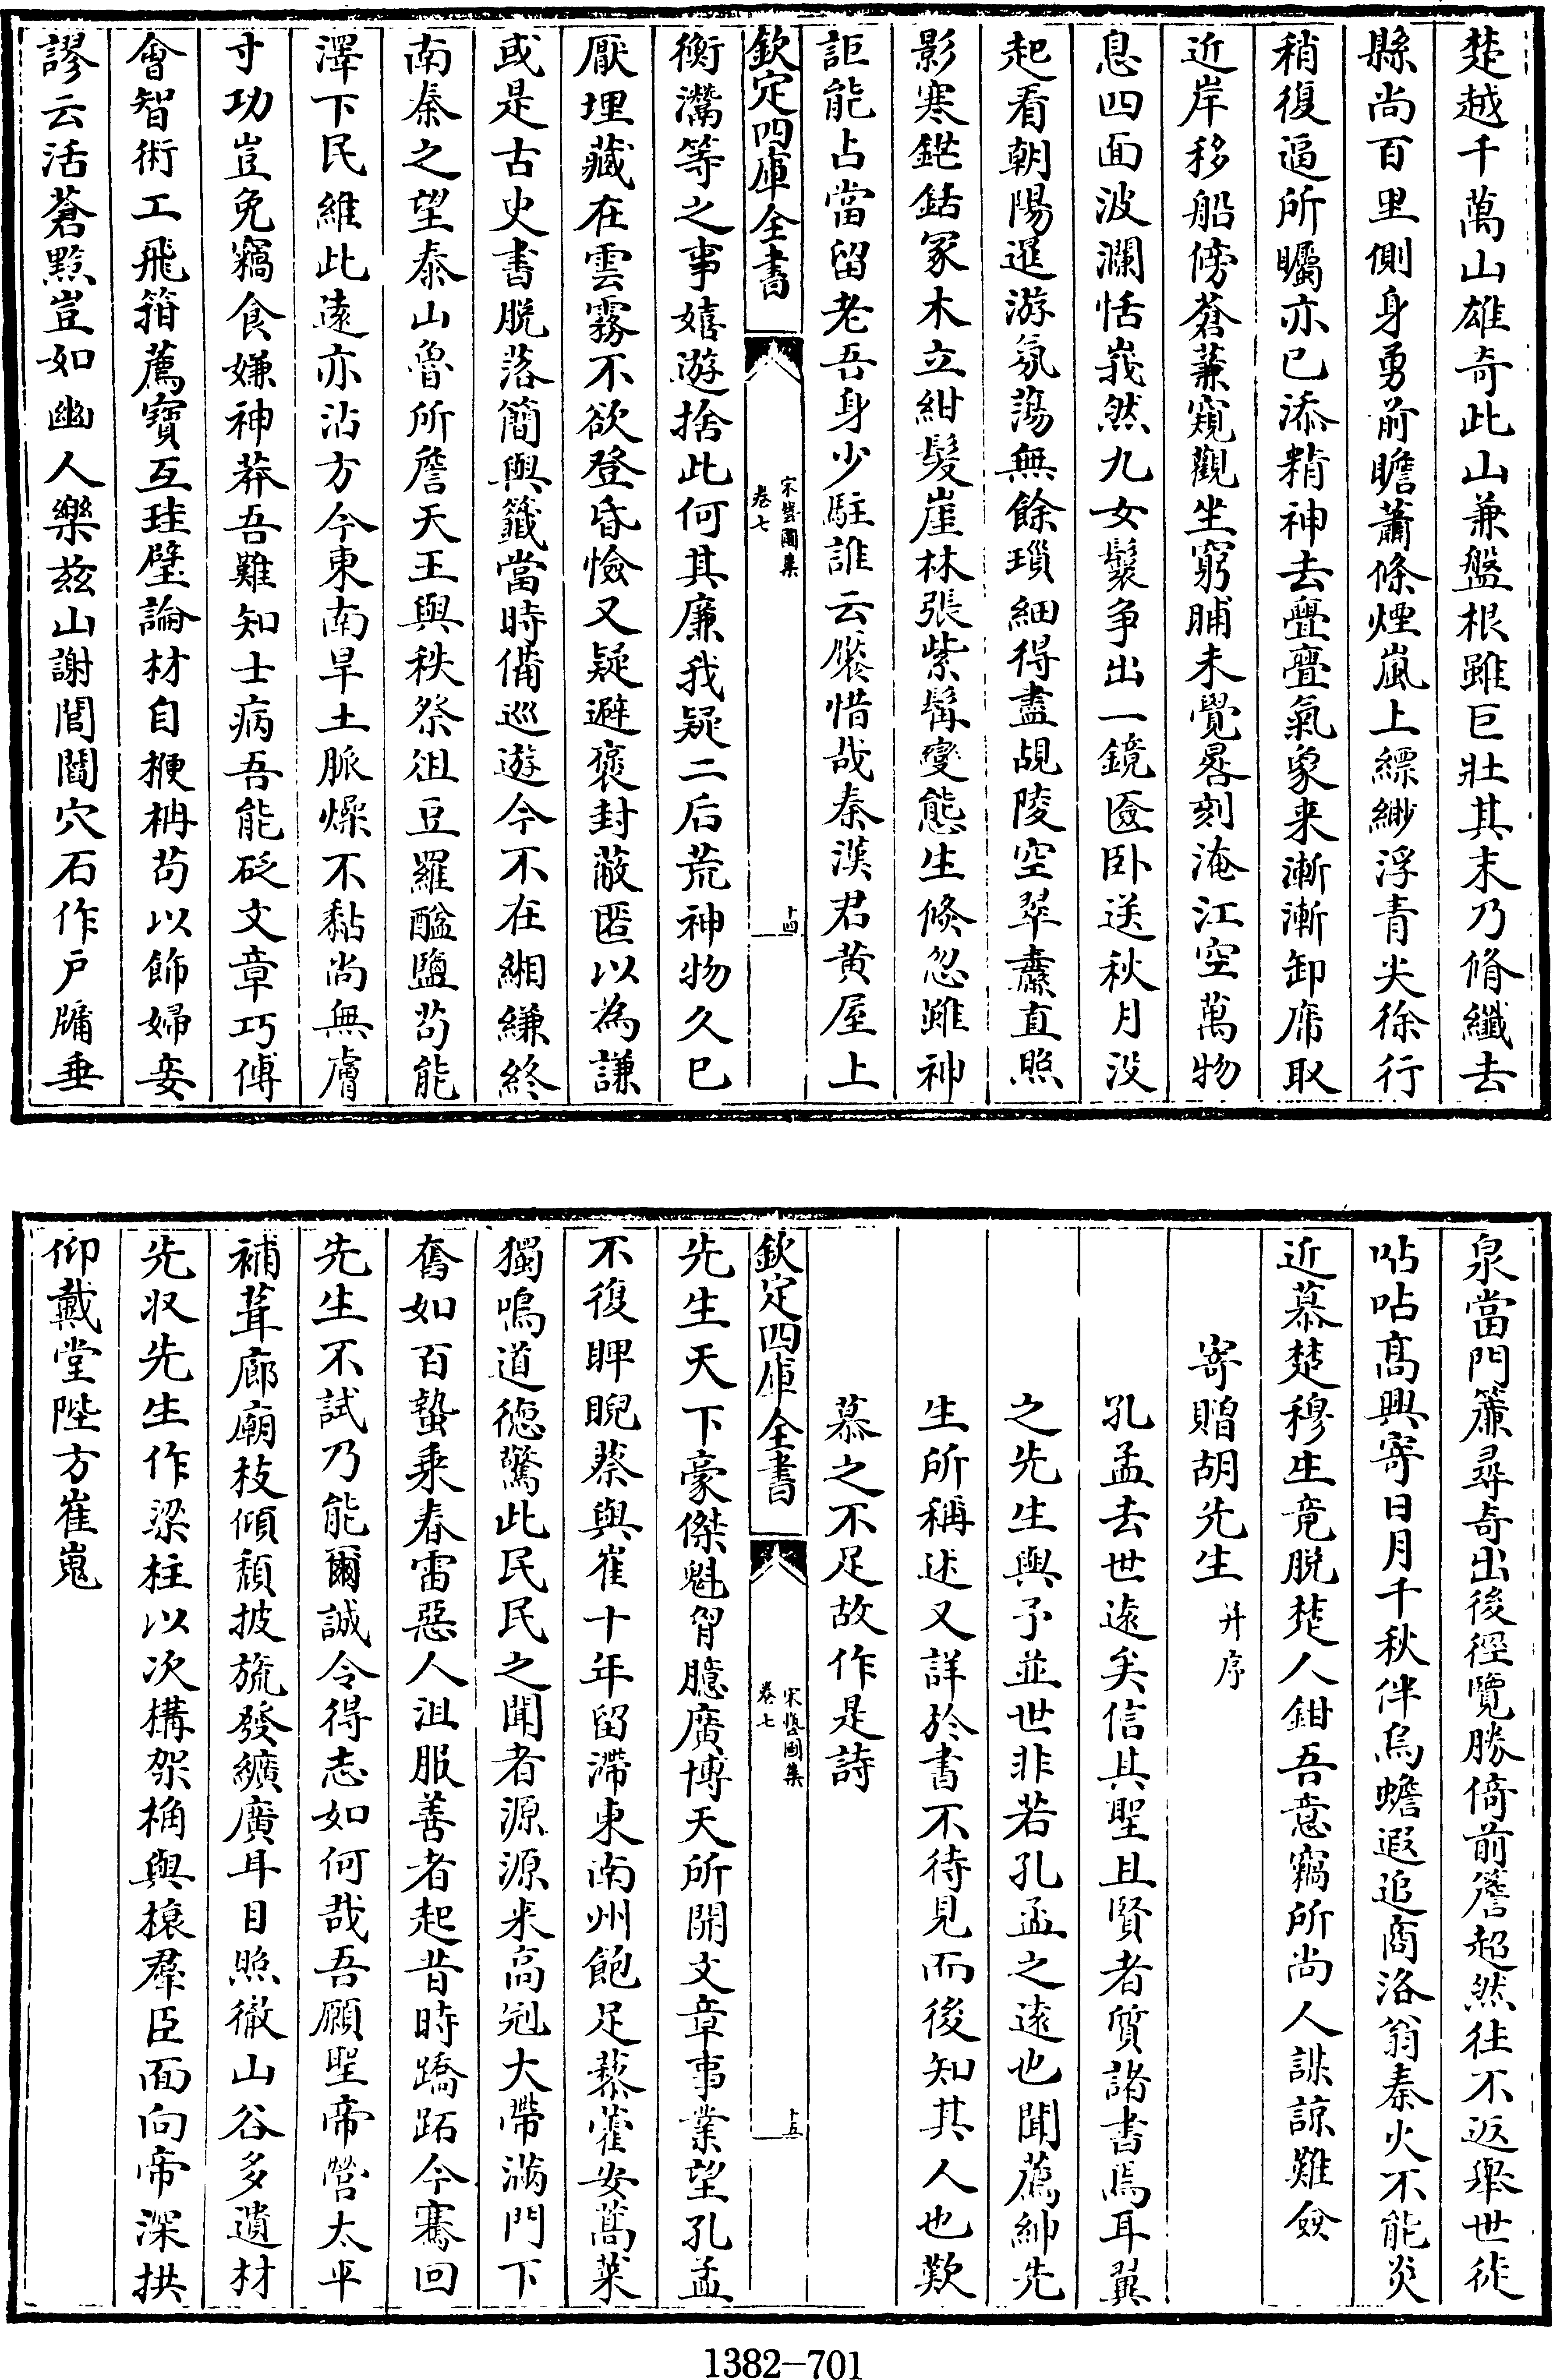 楚越千萬山雄奇此山兼盤根雖巨壯其末乃脩纖去
縣尚百里側身勇前瞻蕭條煙嵐上縹緲浮青尖徐行
稍復逼所矚亦已添精神去疊疊氣象來漸漸卸席取
近岸移船傍蒼蒹窺觀坐窮脯未覺晷刻淹江空萬物
息四面波瀾恬峩然九女鬟爭出一鏡匳卧送秋月没
起看朝陽暹游氛蕩無餘瑣細得盡覘陵空翠纛直照
影寒鋩銛冢木立紺髮崖林張紫髯變態生倐忽雖神
詎能占當留老吾身少駐誰云饜惜哉秦漢君黄屋上
欽定四庫全書
宋藝圃集
卷七
十四
衡灊等之事嬉遊捨此何其廉我疑二后荒神物久已
厭埋藏在雲霧不欲登昏憸又疑避褒封蔽匿以為謙
或是古史書脱落簡與籤當時備巡遊今不在緗縑終
南秦之望泰山魯所詹天王與秩祭俎豆羅醯鹽苟能
澤下民維此遠亦沾方今東南旱土脈燥不黏尚無膚
寸功豈免竊食嫌神莽吾難知士病吾能砭文章巧傅
會智術工飛箝薦寶互珪璧論材自楩柟苟以飾婦妾
謬云活蒼黔豈如幽人樂兹山謝閭閻穴石作户牖垂
泉當門簾尋奇出後徑覽勝倚前簷超然往不返舉世徒
呫呫高興寄日月千秋伴烏蟾遐追商洛翁秦火不能炎
近慕楚穆生竟脱楚人鉗吾意竊所尚人謀諒難僉
寄贈胡先生 并序
孔孟去世遠矣信其聖且賢者質諸書焉耳翼
之先生與予並世非若孔孟之遠也聞薦紳先
生所稱述又詳於書不待見而後知其人也歎
慕之不足故作是詩
欽定四庫全書
宋藝圃集
卷七
十五
先生天下豪傑魁胷臆廣博天所開文章事業望孔孟
不復睥睨蔡與崔十年留滯東南州飽足藜藿安蒿萊
獨鳴道德驚此民民之聞者源源来高冠大帶滿門下
奮如百蟄乘春雷惡人沮服善者起昔時蹻跖今騫回
先生不試乃能爾誠令得志如何哉吾願聖帝營太平
補葺廊廟枝傾頹披旒發纊廣耳目照徹山谷多遺材
先收先生作梁柱以次構架桷與榱羣臣面向帝深拱
仰戴堂陛方崔嵬
1382—701